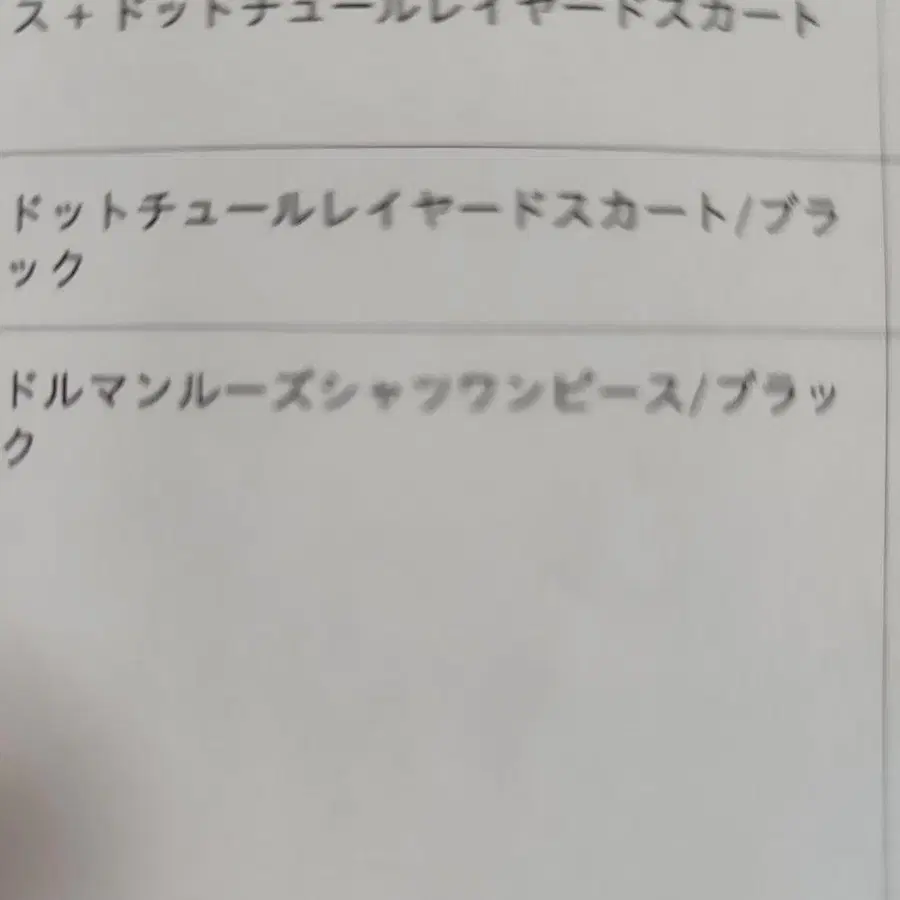 ス + ドットチュールレイヤードスカート
ドットチュールレイヤードスカート/ブラ
ック
ドルマンルーズシャツワンピース/ブラッ
ク